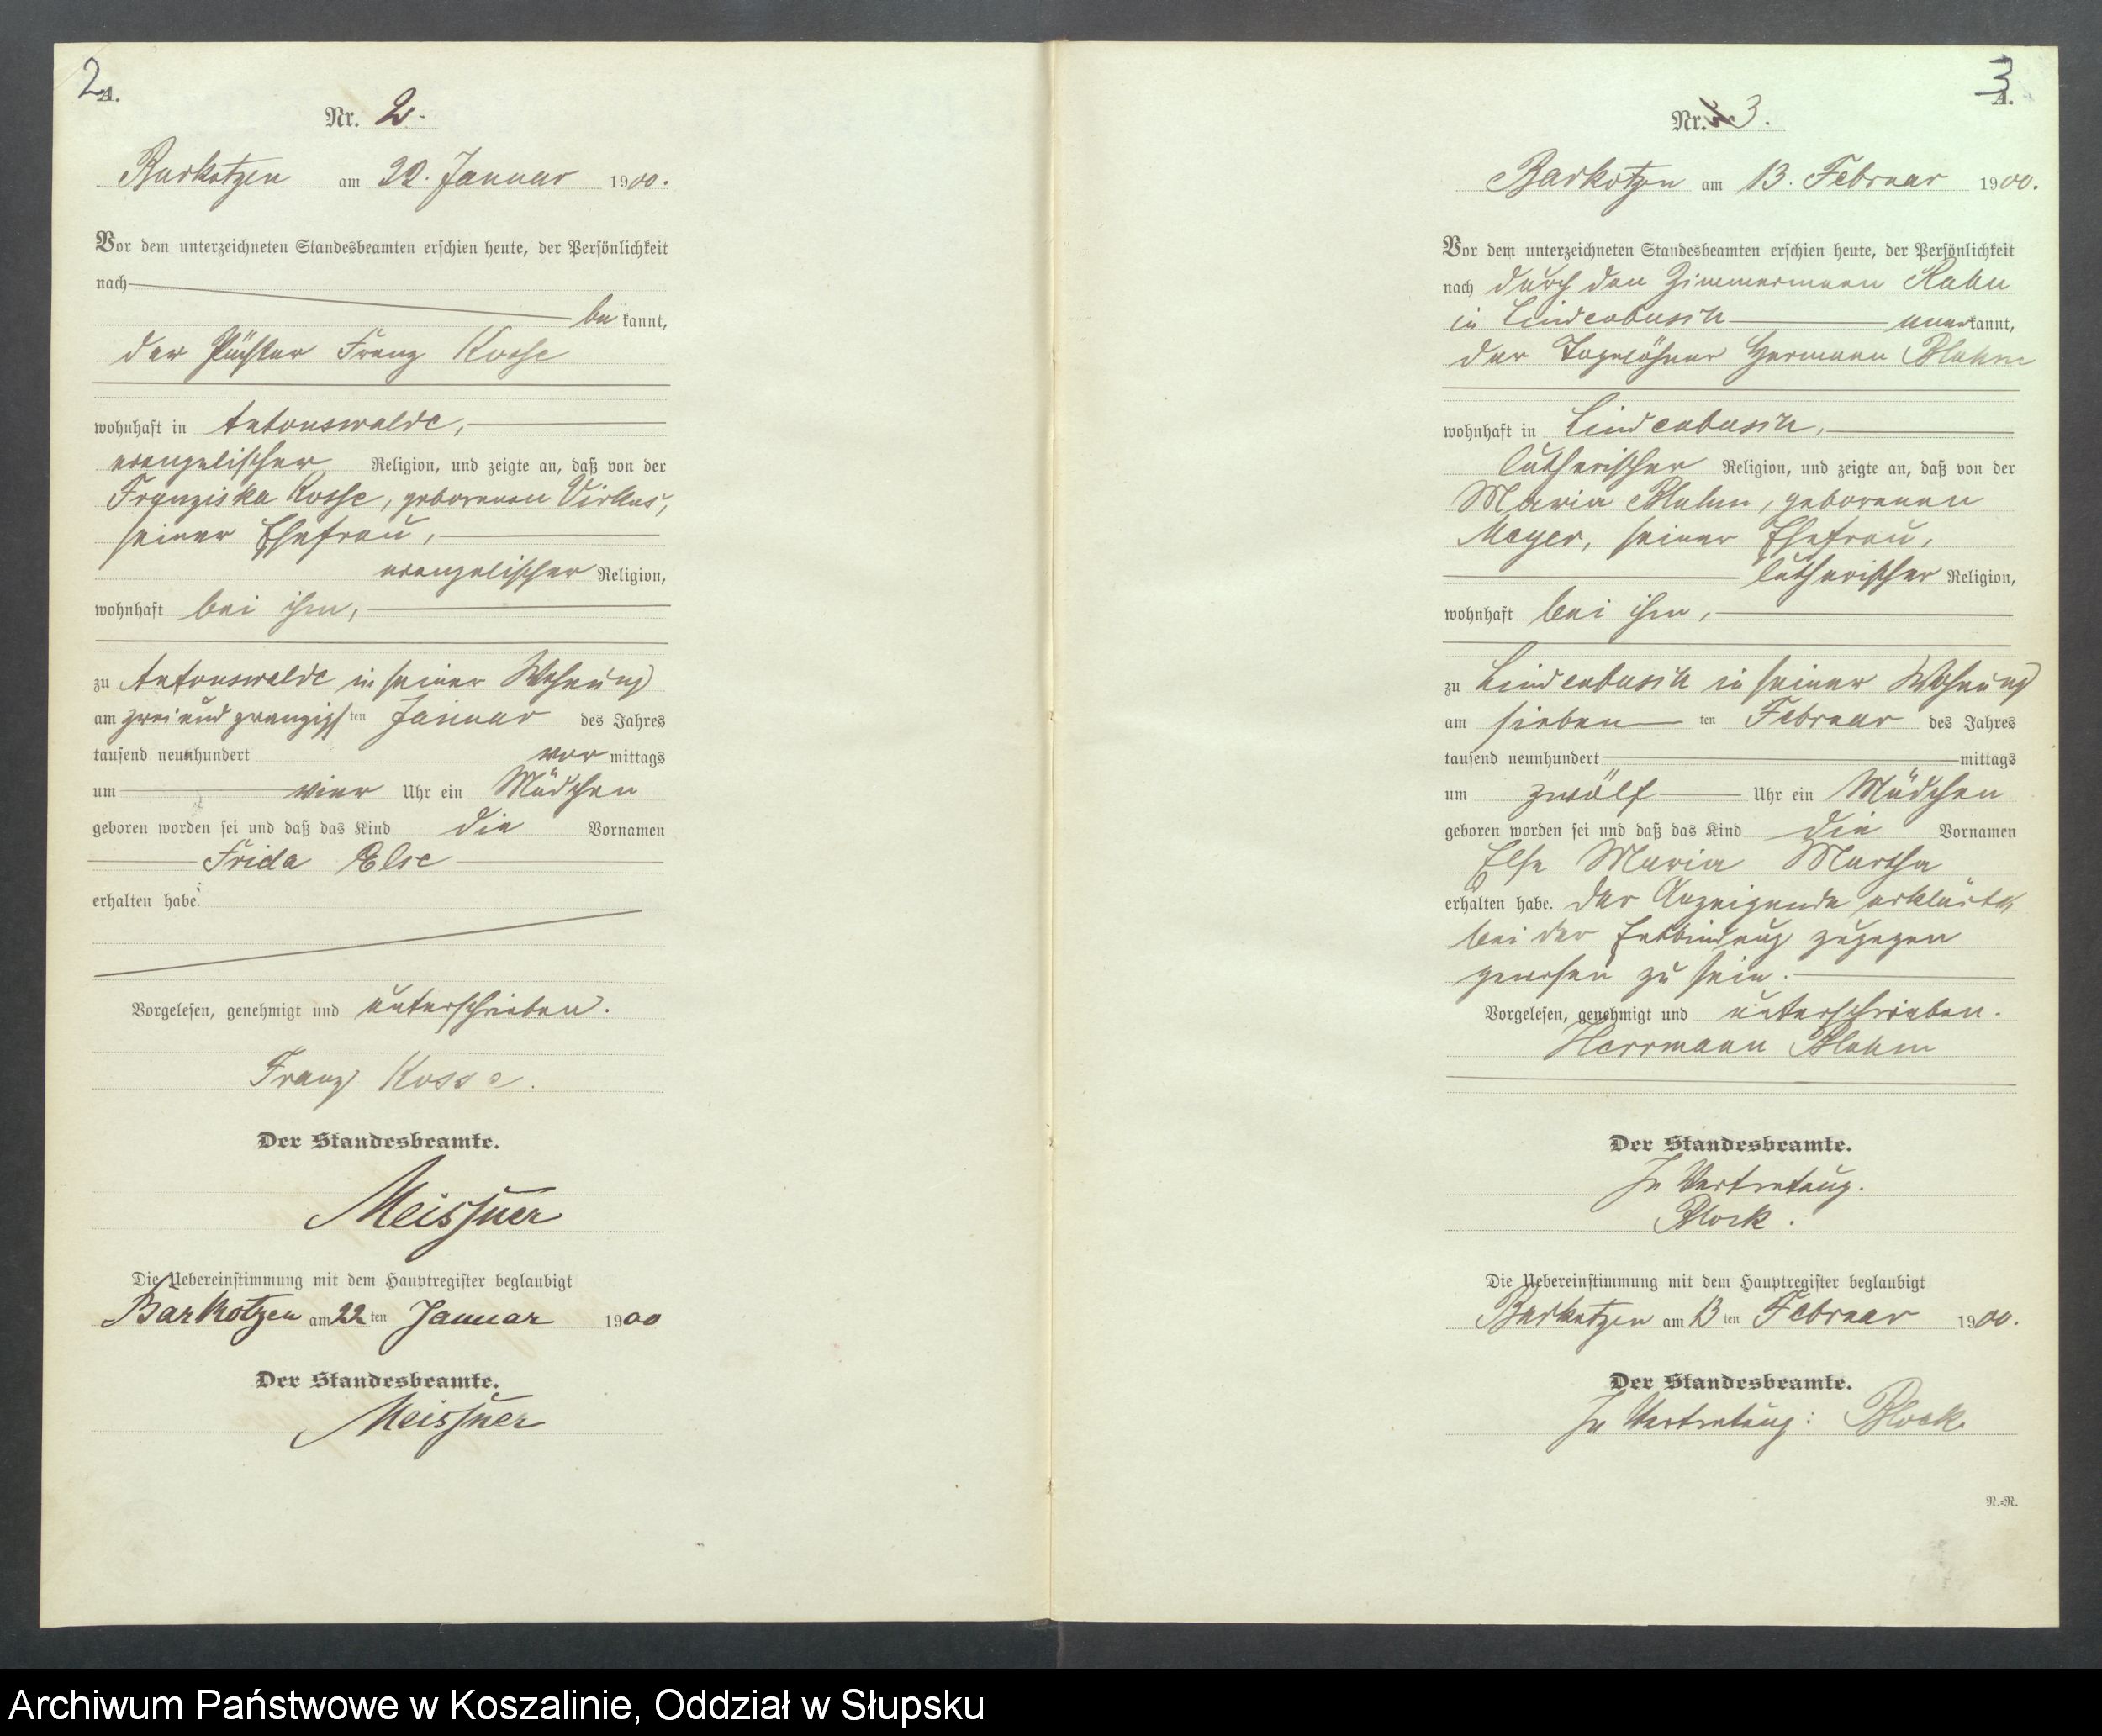 2
A.
Nr. 2.
Barkotzen am 22. Januar 1900.
Vor dem unterzeichneten Standesbeamten erschien heute, der Persönlichkeit
nach
bekannt,
der Pächter Franz Kosse
wohnhaft in Antonswalde,
evangelischer Religion, und zeigte an, daß von der
Franziska Kosse, geborenen Virkus,
seiner Ehefrau,
evangelischer Religion,
wohnhaft bei ihm,
zu Antonswalde in seiner Wohnung
am zwei und zwanzigsten Januar des Jahres
tausend neunhundert vormittags
um vier Uhr ein Mädchen
geboren worden sei und daß das Kind die Vornamen
Frida Else
erhalten habe.
Vorgelesen, genehmigt und unterschrieben.
Franz Kosse.
Der Standesbeamte.
Meissner
Die Uebereinstimmung mit dem Hauptregister beglaubigt
Barkotzen am 22 ten Januar 1900
Der Standesbeamte.
Meissner
3
A.
Nr. 3.
Barkotzen am 13. Februar 1900.
Vor dem unterzeichneten Standesbeamten erschien heute, der Persönlichkeit
nach durch den Zimmermann Rahn
in Lindenbusch anerkannt,
der Tagelöhner Hermann Bluhm
wohnhaft in Lindenbusch,
lutherischer Religion, und zeigte an, daß von der
Maria Bluhm, geborenen
Meyer, seiner Ehefrau,
lutherischer Religion,
wohnhaft bei ihm,
zu Lindenbusch in seiner Wohnung
am sieben ten Februar des Jahres
tausend neunhundert mittags
um zwölf Uhr ein Mädchen
geboren worden sei und daß das Kind die Vornamen
Else Maria Martha
erhalten habe. Der Anzeigende erklärte,
bei der Entbindung zugegen
gewesen zu sein.
Vorgelesen, genehmigt und unterschrieben.
Herrmann Bluhm
Der Standesbeamte.
In Vertretung.
Block.
Die Uebereinstimmung mit dem Hauptregister beglaubigt
Barkotzen am 13 ten Februar 1900.
Der Standesbeamte.
In Vertretung: Block
N.=R.
Archiwum Państwowe w Koszalinie, Oddział w Słupsku